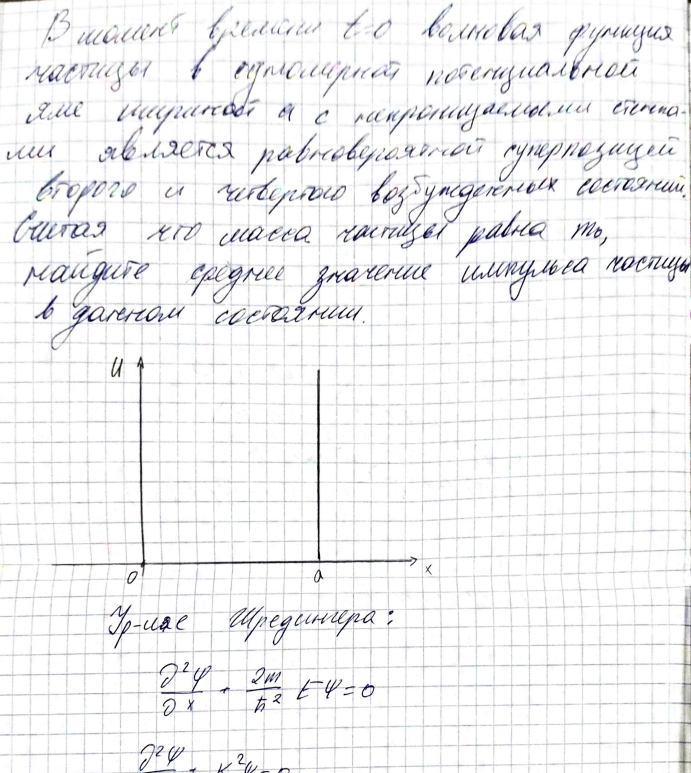 В момент времени t=0 волновая функция
частицы в одномерной потенциальной
яме шириной a с непроницаемыми стенка-
ми является равновероятной суперпозицией
второго и четвертого возбужденных состояний.
Считая что масса частицы равна m₀,
найдите среднее значение импульса частицы
в данном состоянии.
U
0 a x
Ур-ние Шредингера:
∂²Ψ/∂x + 2m/ħ² EΨ=0
∂²Ψ + k²Ψ=0